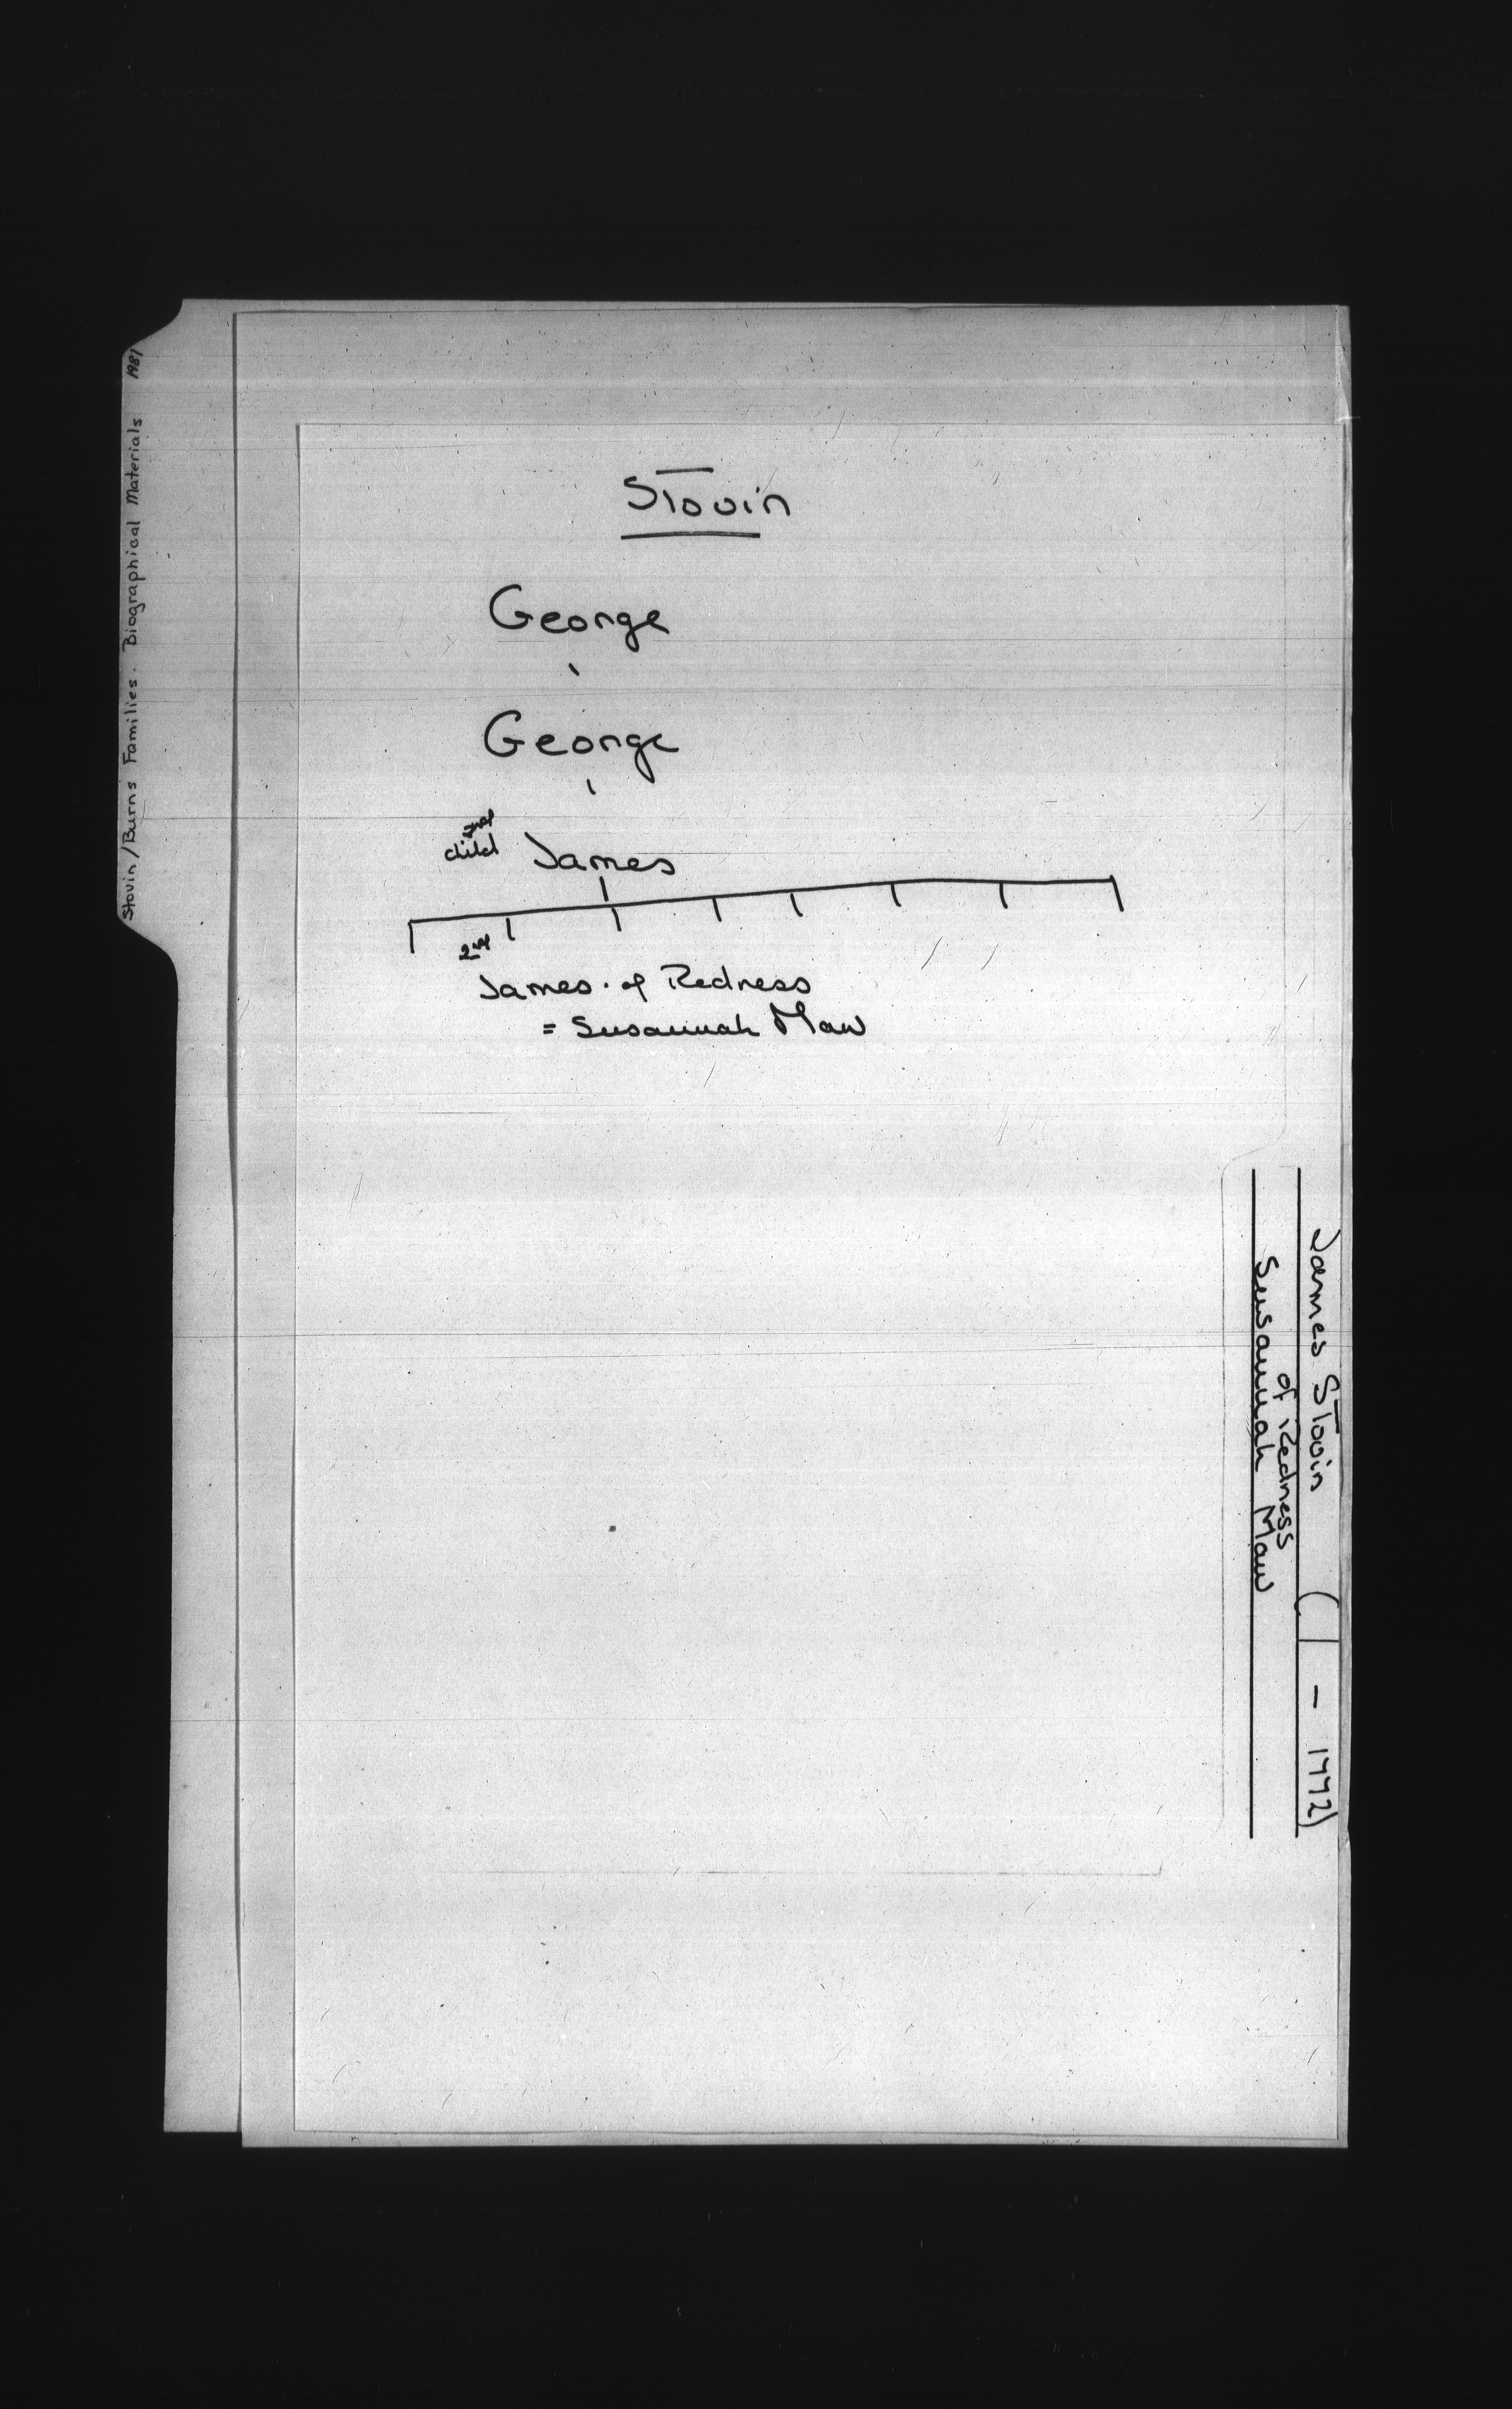 Stovin/Burns Families. Biographical Materials 1981
Stovin
George
George
child James
2nd
James. of Redness
= Susannah Maw
James Stovin ( - 1772)
of Redness
Susannah Maw